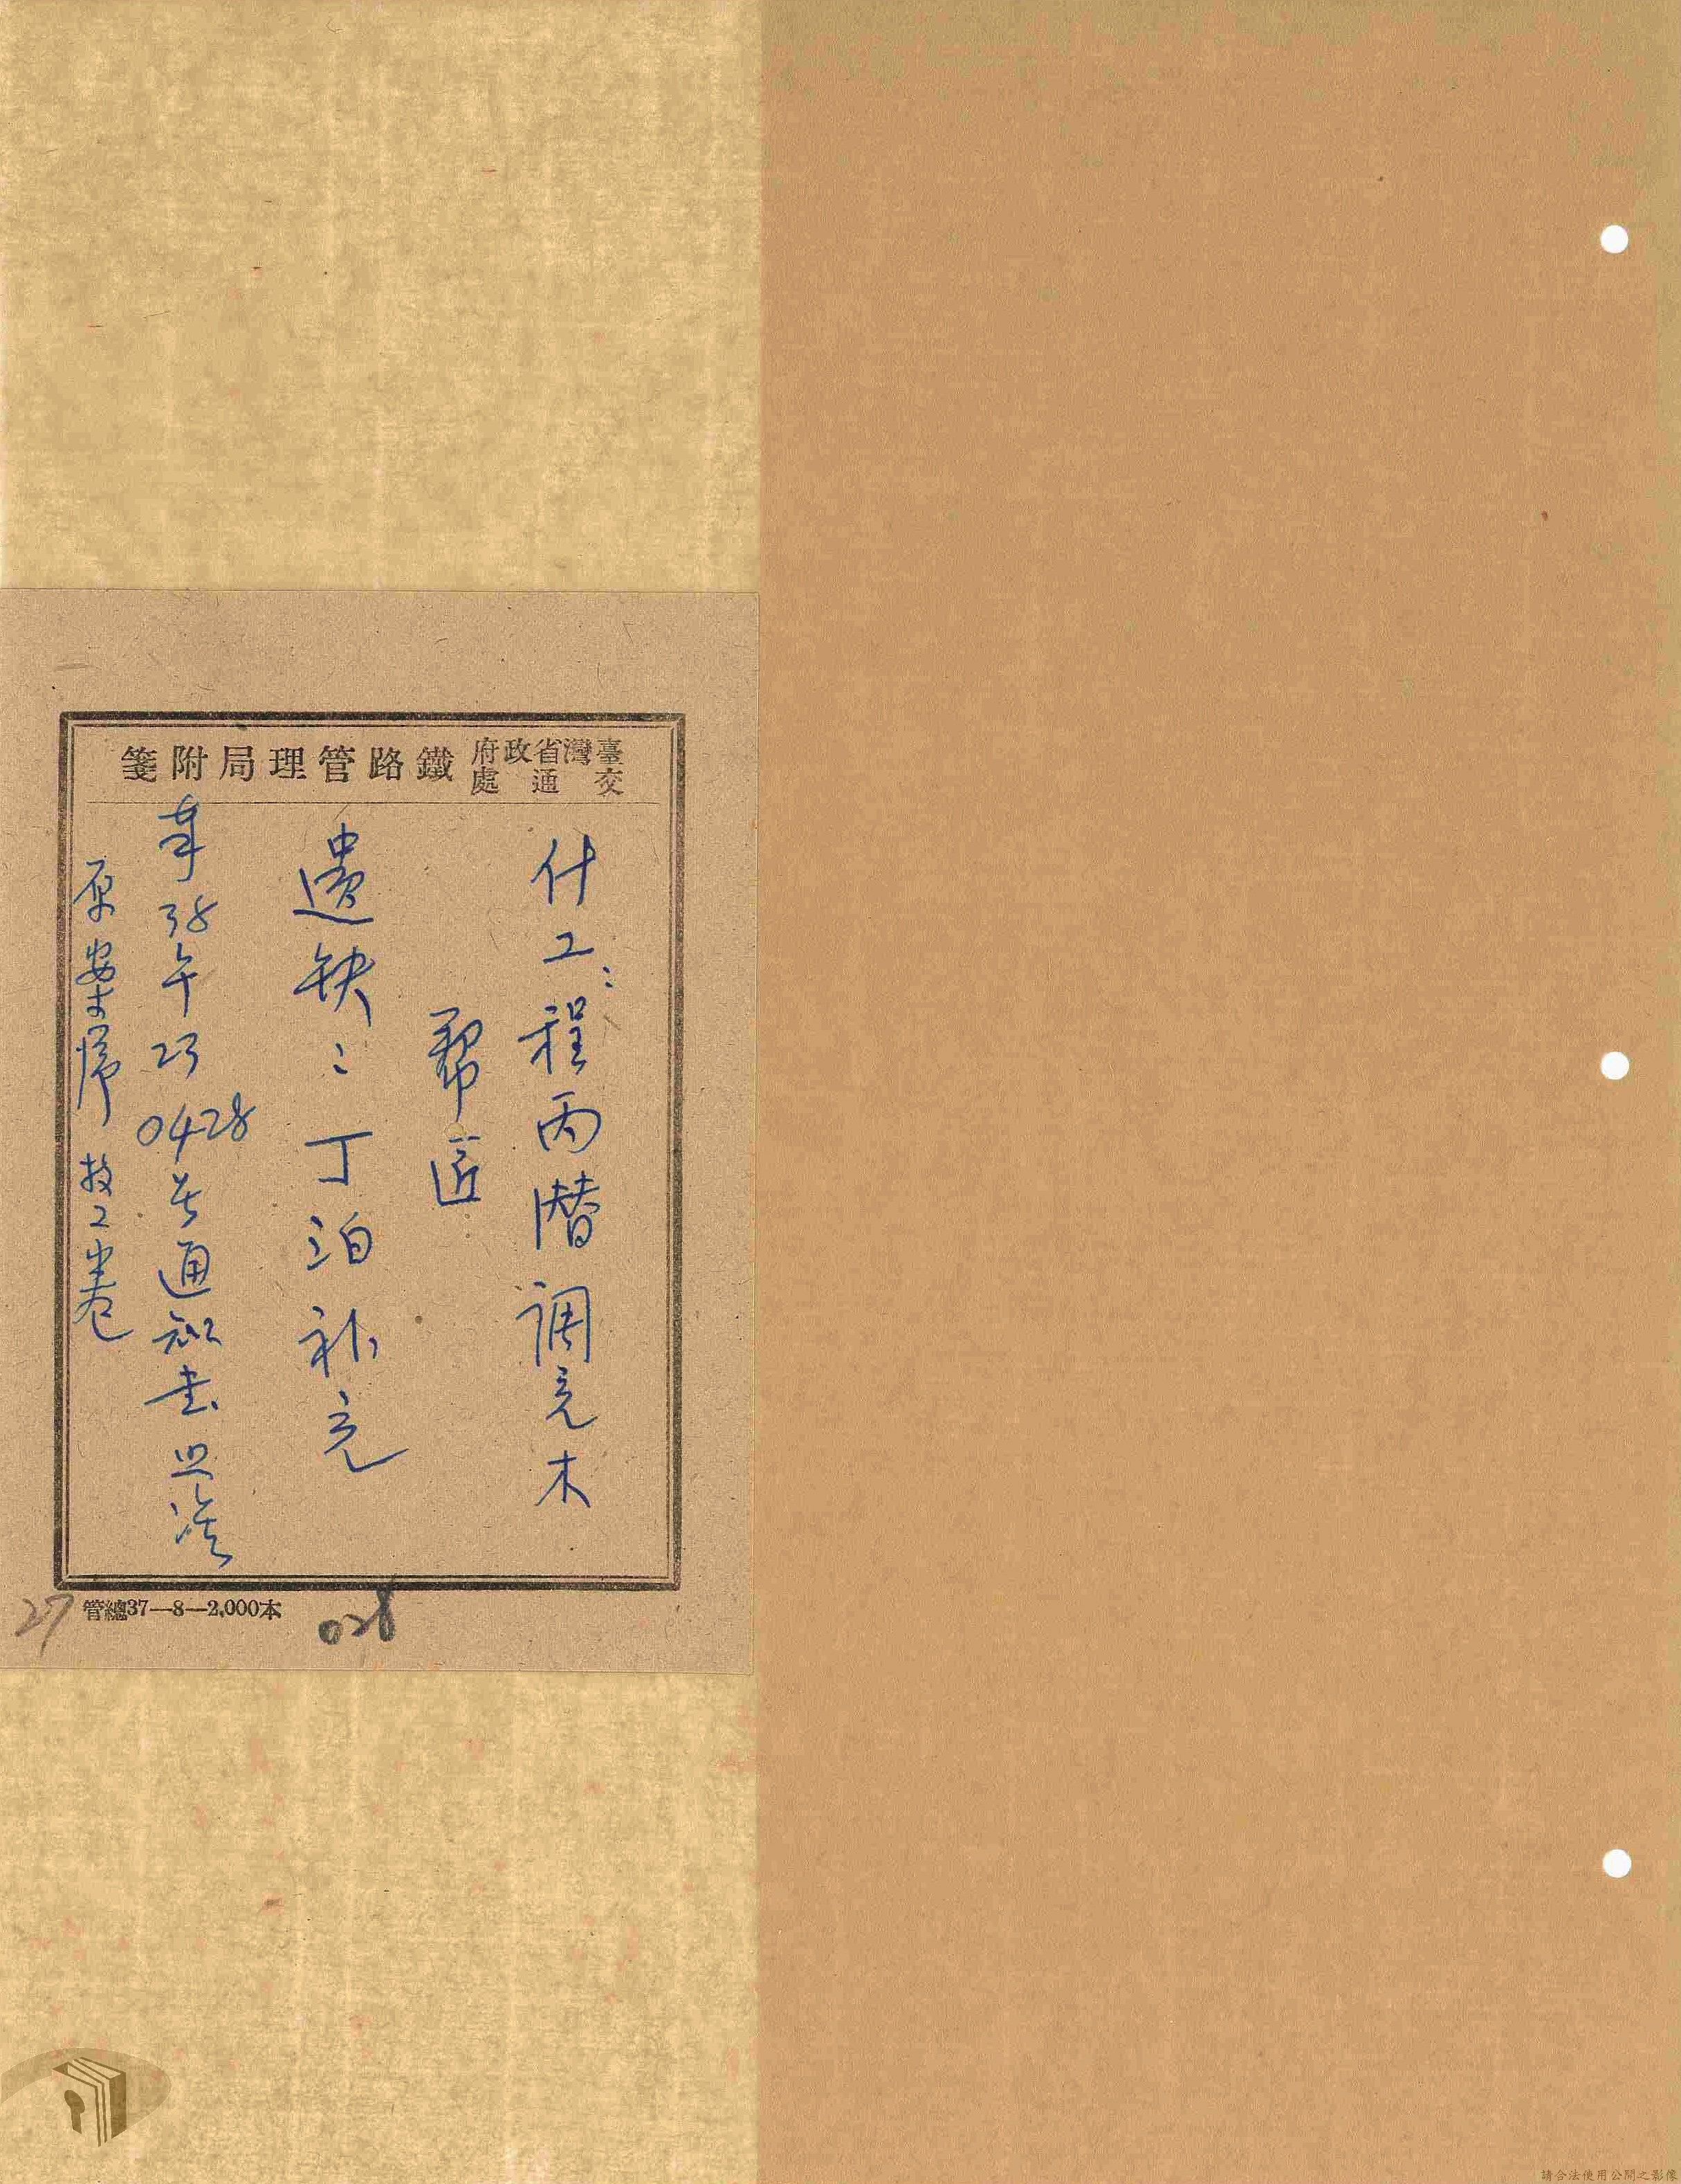 臺灣省政府交通處鐵路管理局附箋
什工：程丙潛調充木
幫匠
遺缺：丁泊补充
奉38午23 0428号通知書照准
原案歸技工卷
管總37—8—2,000本
27
028
請合法使用公開之影像